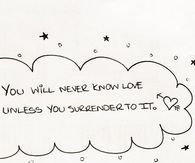 YOU WILL NEVER KNOW LOVE
UNLESS YOU SURRENDER TO IT.